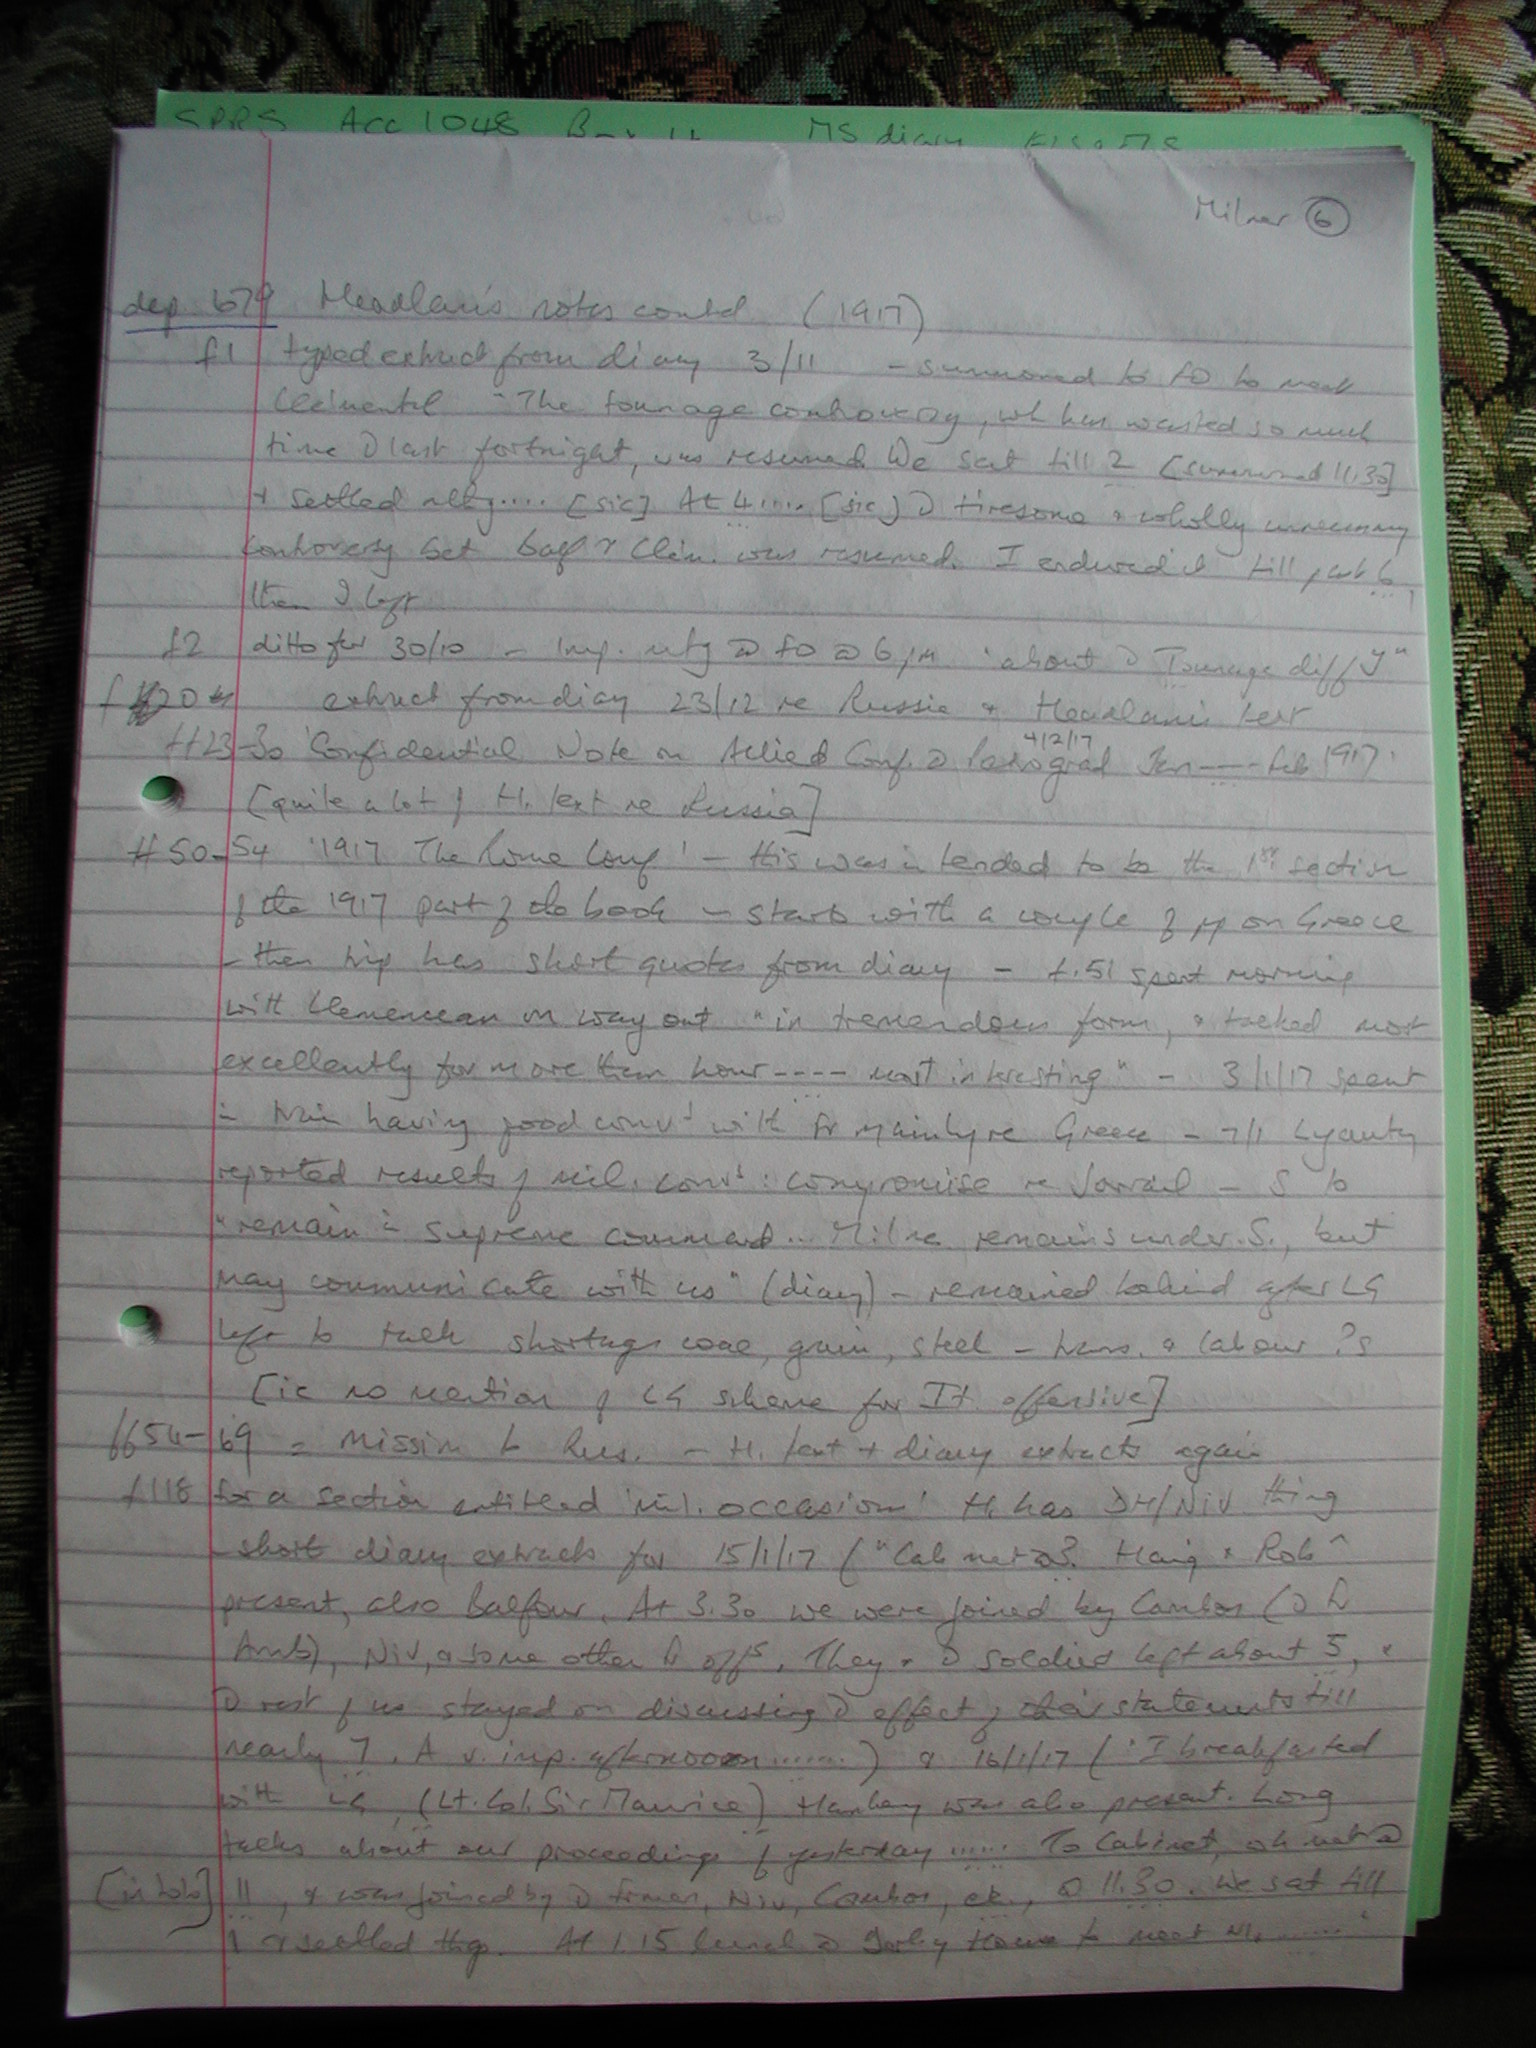 SPRS Acc 1048 Box MS diary
Milner 6
dep 679 Headlam's notes contd (1917)
f1 typed extract from diary 3/11 - summoned to FO to meet
Clémentel "The tonnage controversy, wh has wasted so much
time last fortnight, was resumed. We sat till 2 [summoned 11.30]
+ settled nthg.... [sic] At 4.... [sic] tiresome & wholly unnecessary
controversy bet Balf & Clém. was resumed. I endured it till past 6
then I left
f2 ditto for 30/10 - Imp. mtg @ FO @ 6 pm "about Tonnage diff y"
f 20 extract from diary 23/12 re Russia + Headlam's text
ff23-30 'Confidential Note on Allied Conf. @ Petrograd 4/2/17 Jan ---- Feb 1917'
[quite a lot of H. text re Russia]
ff50-54 '1917 The Rome Conf' - this was intended to be the 1st section
of the 1917 part of the book - starts with a couple of pp on Greece
- then has short quotes from diary - f.51 spent morning
with Clemenceau on way out "in tremendous form, & talked most
excellently for more than hour ---- most interesting" - 3/1/17 spent
in train having good convs with Fr mainly re Greece - 7/1 Lyautey
reported results of mil. convs: compromise re Sarrail - S to
"remain in supreme command... Milne remains under S., but
may communicate with us" (diary) - remained behind after LG
left to talk shortage coal, grain, steel - trans. & labour ?s
[ie no mention of LG scheme for It. offensive]
ff54-69 = mission to Rus. - H. text + diary extracts again
f118 for a section entitled 'mil. occasion' H. has DH/Niv thing
- short diary extracts for 15/1/17 ("Cab met @ 3. Haig & Rob^
present, also Balfour. At 3.30 we were joined by Cambon ( Fr
Amb), Niv, & some other Fr offs. They & soldiers left about 5, &
rest of us stayed on discussing effect of their statements till
nearly 7. A v. imp. afternoon ......) & 16/1/17 ('I breakfasted
with LG, (Lt. Col. Sir Maurice) Hankey was also present. Long
talks about our proceedings of yesterday ...... To Cabinet, wh met @
[in toto] 11, & was joined by Niv, Cambon, etc., @ 11.30. We sat till
1 & settled thgs. At 1.15 lunch @ Derby House to meet Niv ......'